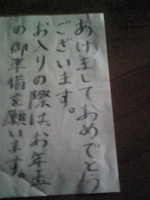 あけましておめでとう
ございます。
お入りの際は、お年玉
の御準備を願います。